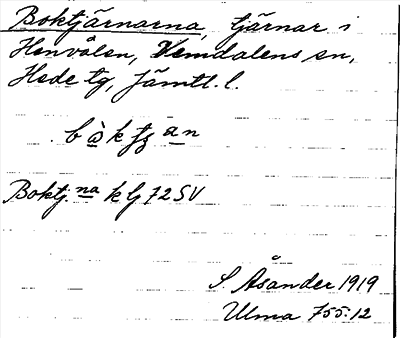 Boktjärnarna, tjärnar i
Henvålen, Vemdalens sn,
Hede tg, Jämtl. l.
Boktj.na k bj 72 SV
S. Åsander 1919
Ulma 755:12